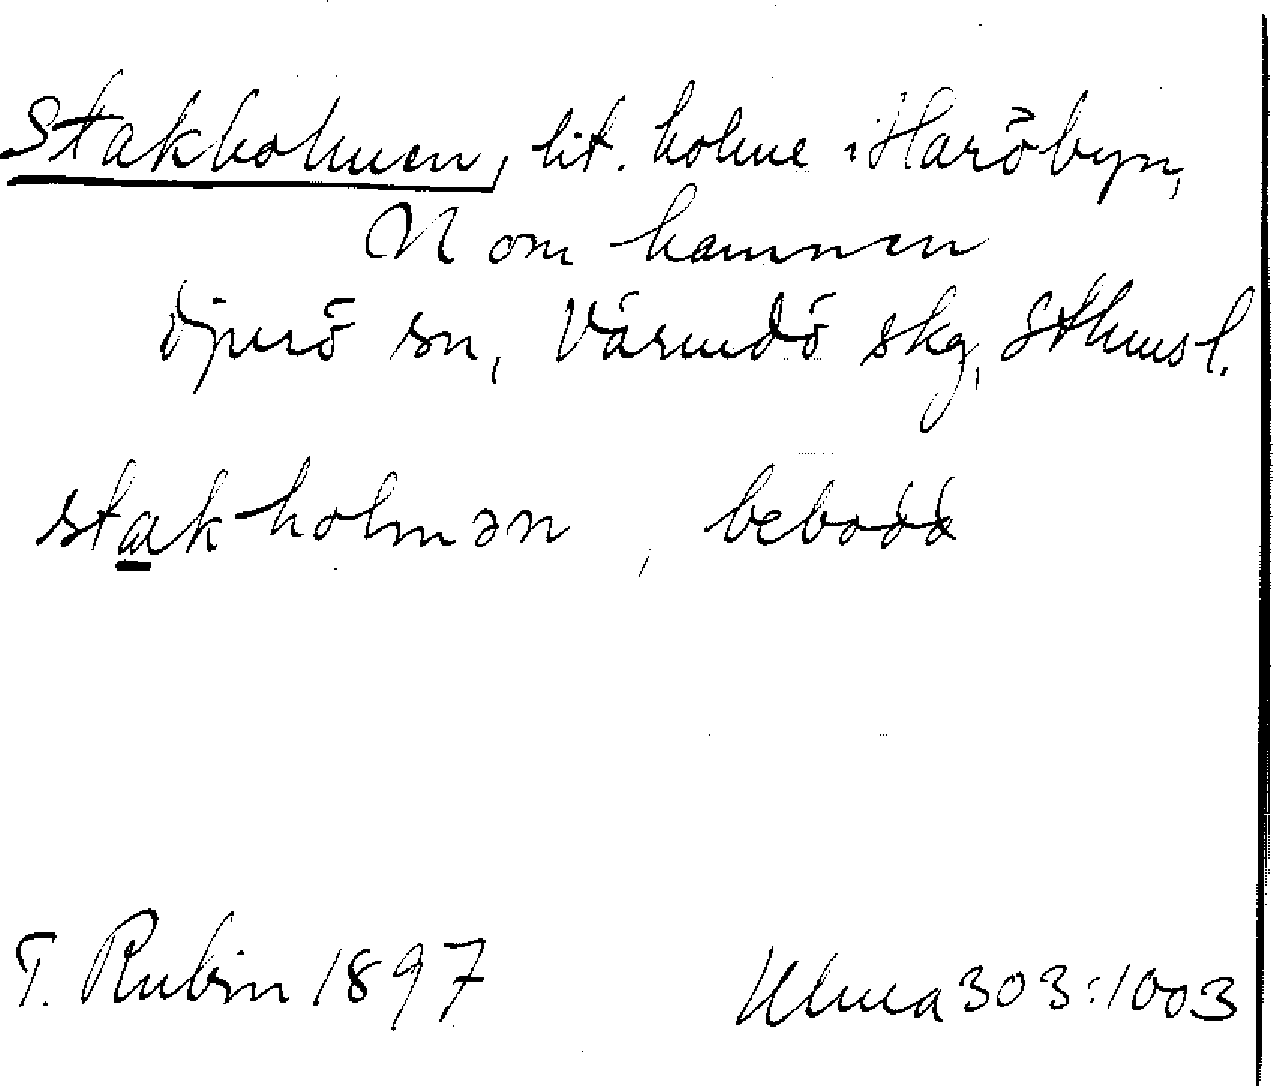 Stakholmen, lit. holme i Haröbyn,
N om hamnen
Djurö sn, Värmdö skg, Sthms l.
stakholmən, bebodd
T. Rubin 1897 Ulma 303:1003